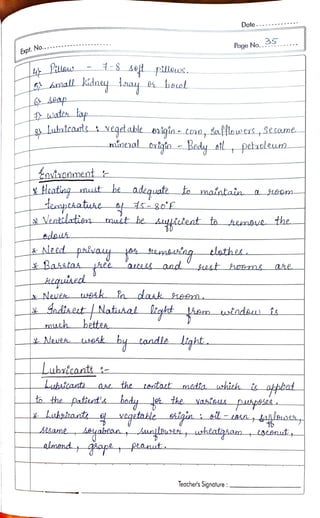 Date..............
Expt. No................
Page No. 35
4) Pillow - 7-8 soft pillows.
5) small kidney tray or bowl
6) soap
7) water tap
8) lubricants : vegetable origin - corn, safflowers, sesame
mineral origin - Body oil, petroleum
Environment :-
* Heating must be adequate to maintain a room
temperature of 75-80°F
* Ventilation must be sufficient to remove the
odour
* Need privacy for removing clothes.
* Barrier free access and rest rooms are
required
* Never work in dark room.
* Indirect / Natural light from window is
much better
* Never work by candle light.
Lubricants :-
Lubricants are the contact media which is applied
to the patient's body for the various purposes.
* Lubricants of vegetable origin : oil - corn, safflower,
sesame, soyabean, sunflower, wheatgram, coconut,
almond, grape, peanut.
Teacher's Signature :